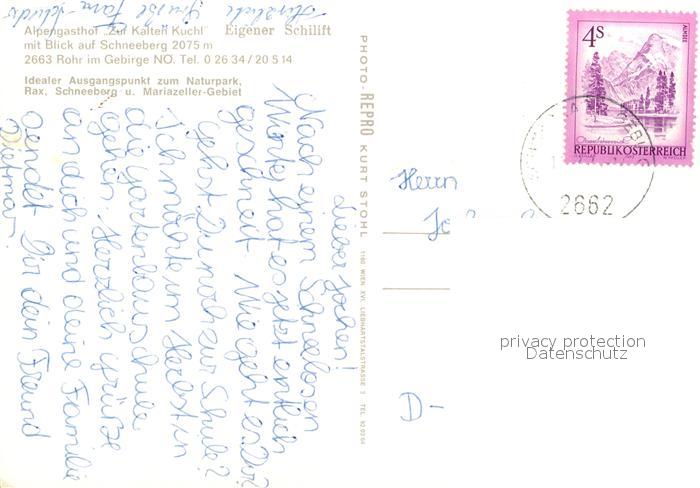 Herzliche Grüße Fam.
Alpengasthof „Zur Kalten Kuchl" Eigener Schilift
mit Blick auf Schneeberg 2075 m
2663 Rohr im Gebirge NÖ. Tel. 0 26 34 / 20 5 14
Idealer Ausgangspunkt zum Naturpark,
Rax, Schneeberg u. Mariazeller-Gebiet
Lieber Jochen!
Nach einem Schneelosen
Winter hat es jetzt entlich
geschneit. Wie geht es Dir?
Gehst Du noch zur Schule?
Ich möchte im Herbst in
die Gartenbauschule
gehen. Herzlich grüße
an dich und deine Familie
sendet Dir dein Freund
Dietmar.
PHOTO-REPRO KURT STOHL 1160 WIEN XVI, LIEBHARTSTALSTRASSE 7 TEL. 92 03 64
4S
ALMSEE
REPUBLIK ÖSTERREICH
2662
Herrn
Jo
D-
privacy protection
Datenschutz